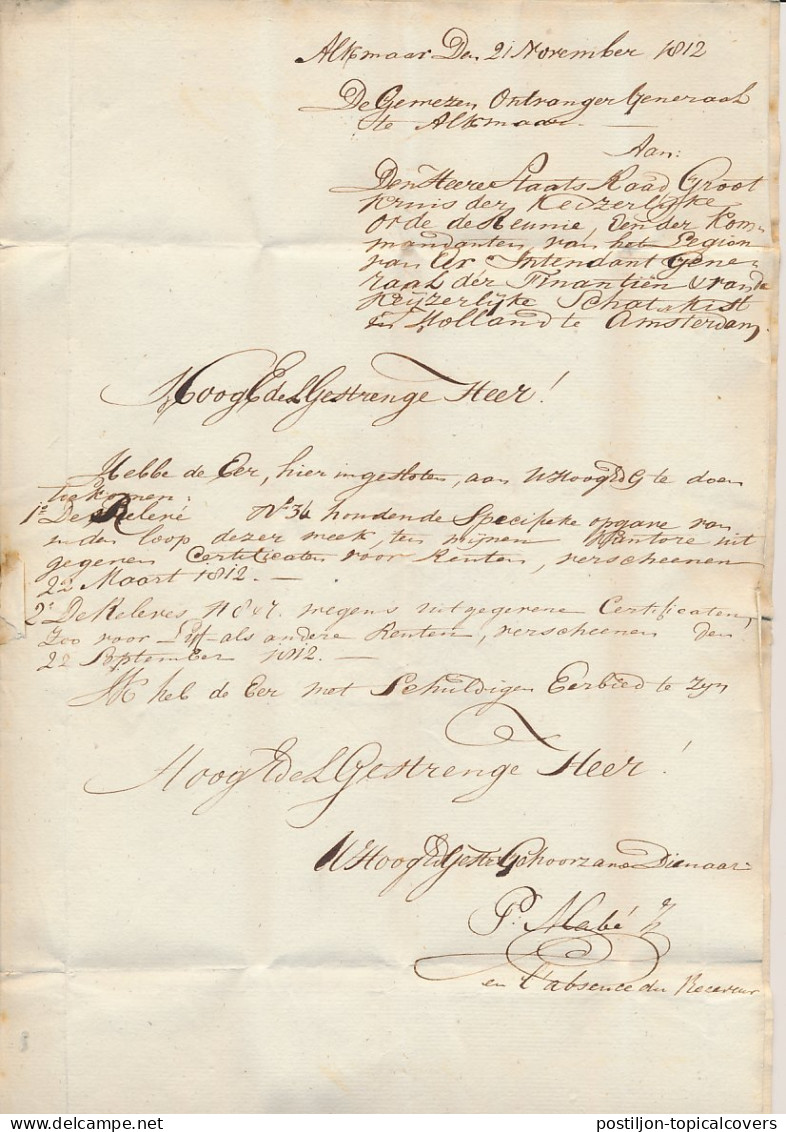 Alkmaar Den 21 November 1812
De Gemezen Ontvanger Generaal
te Alkmaar
Aan:
Den Heere Staats Raad Groot
Kruis der Keizerlijke
Orde de Reunie, Een der Kom-
mandanten, van het Legion
van Er Intendant Gene-
raal dér Finantiën & van de
Keijzerlijke Schatkist
in Holland te Amsterdam.
HoogEdelGestrenge Heer!
Hebbe de Eer, hier ingesloten, aan UHoogEdG te doen
toekomen:
1e De Relevé No 34 houdende Specifieke opgave van
in den loop dezer week, ten mijnen Kantore uit
gegeven Certificaten voor Renten, verscheenen
22 Maart 1812. —
2e De Releves wegens uitgegevene Certificaten,
Zoo voor Lijf- als andere Renten, verscheenen den
22 September 1812. —
Ik heb de Eer met Schuldigen Eerbied te zyn
HoogEdelGestrenge Heer!
UHoogEdGestr Gehoorzame Dienaar
P. Mabé Jz
en l'absence du Receveur
postiljon-topicalcovers